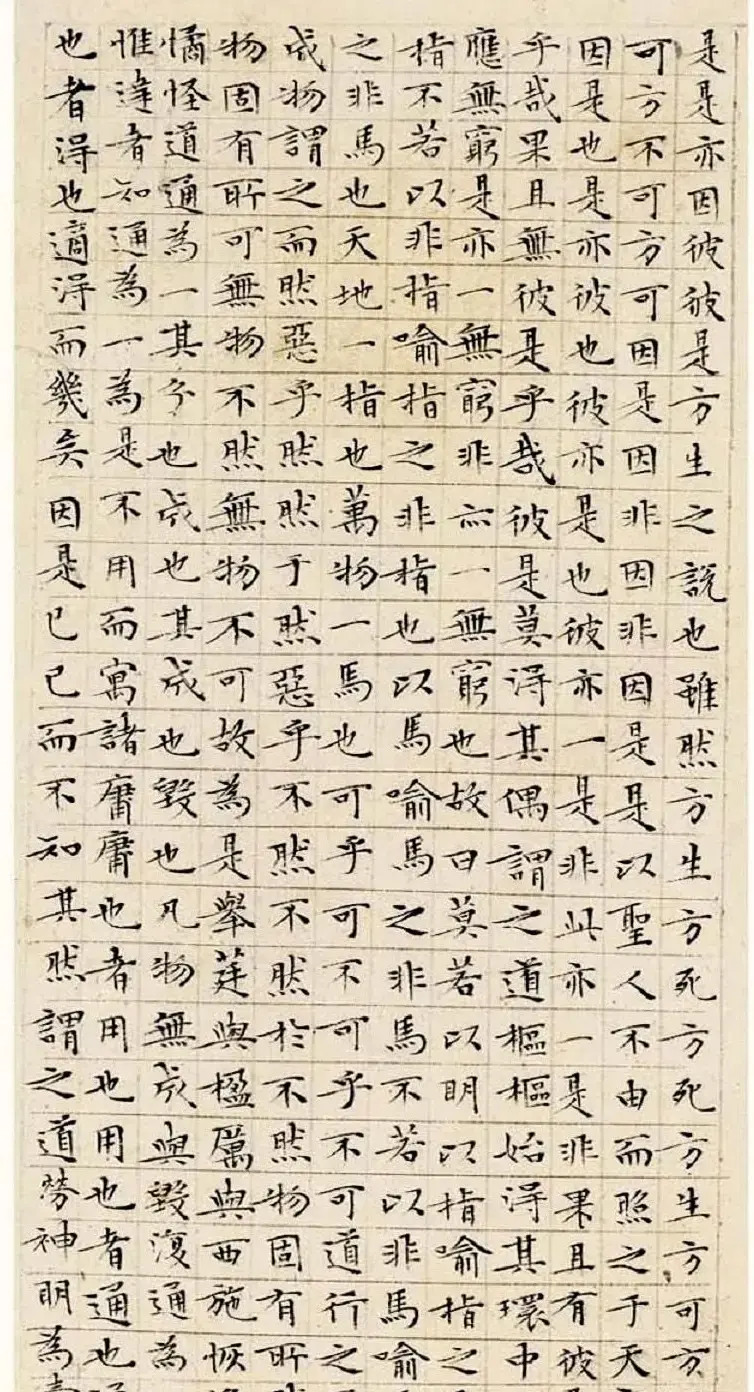 是是亦因彼彼是方生之說也雖然方生方死方死方生方可方
可方不可方可因是因非因非因是是以聖人不由而照之于天
因是也是亦彼也彼亦是也彼亦一是非此亦一是非果且有彼
乎哉果且無彼是乎哉彼是莫得其偶謂之道樞樞始得其環中
應無窮是亦一無窮非亦一無窮也故曰莫若以明以指喻指之
指不若以非指喻指之非指也以馬喻馬之非馬不若以非馬喻
之非馬也天地一指也萬物一馬也可乎可不可乎不可道行之
成物謂之而然惡乎然然于然惡乎不然不然於不然物固有所
物固有所可無物不然無物不可故為是舉莛與楹厲與西施恢
憰怪道通為一其分也成也其成也毀也凡物無成與毀復通為
惟達者知通為一為是不用而寓諸庸庸也者用也用也者通也
也者得也適得而幾矣因是已已而不知其然謂之道勞神明為